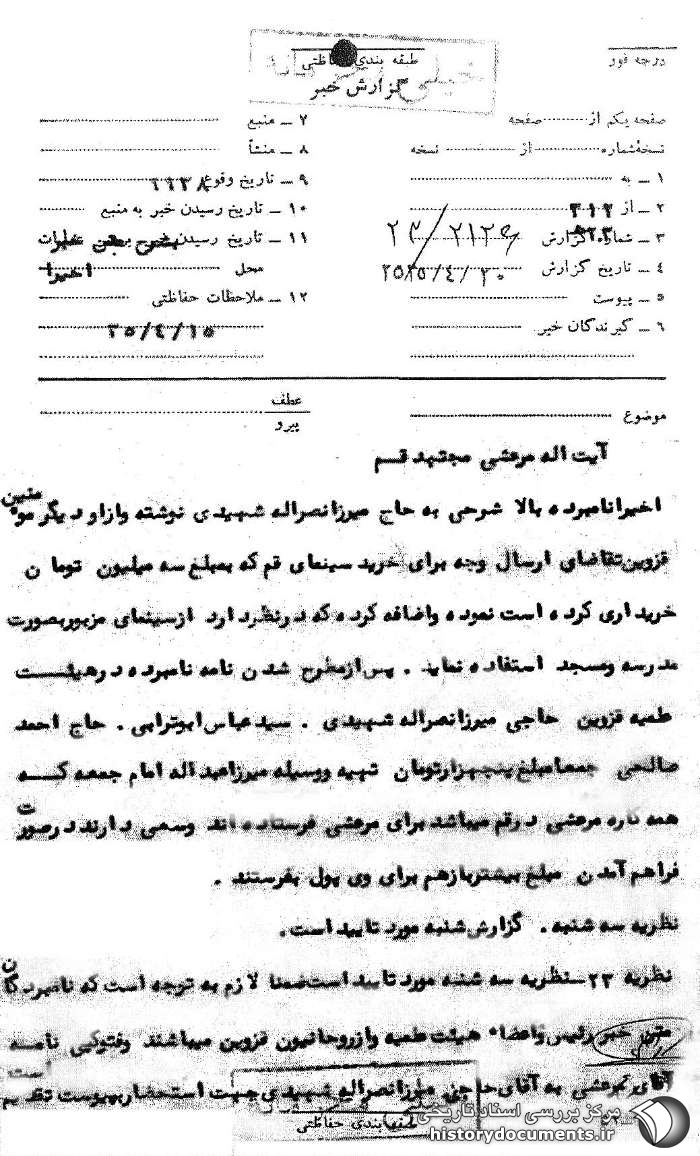 درجه فور
طبقه بندی حفاظتی
خیلی محرمانه
گزارش خبر
صفحه یکم از صفحه
نسخه شماره از نسخه
۱ ـ به
۲ ـ از ۳۱۲
۳ ـ شماره گزارش
۴ ـ تاریخ گزارش ۲۵۳۵/۴/۲۰
۵ ـ پیوست
۶ ـ گیرندگان خبر
۷ ـ منبع
۸ ـ منشأ
۹ ـ تاریخ وقوع
۱۰ ـ تاریخ رسیدن خبر به منبع
۱۱ ـ تاریخ رسیدن خبر به رهبر عملیات
محل اخیرا
۱۲ ـ ملاحظات حفاظتی
۳۵/۴/۱۵
موضوع
عطف
پیرو
آیت اله مرعشی مجتهد قـم
اخیرا نامبرده بالا شرحی به حاج میرزا نصراله شهیدی نوشته و از او و دیگر مومنین
قزوین تقاضای ارسال وجه برای خرید سینمای قم که بمبلغ سه میلیون تومان
خریداری کرده است نموده و اضافه کرده که در نظر دارد از سینمای مزبور بصورت
مدرسه و مسجد استفاده نماید . پس از مطرح شدن نامه نامبرده در هیئـت
علمیه قزوین حاجی میرزا نصراله شهیدی . سید عباس ابوترابی . حاج احمد
صالحی جمعا مبلغ پنجهزار تومان تهیه و وسیله میرزا عبداله امام جمعه کـه
همه کاره مرعشی در قم میباشد برای مرعشی فرستاده اند و سعی دارند در صورت
فراهم آمدن مبلغ بیشتر باز هم برای وی پول بفرستند .
نظریه سه شنبه . گزارش شنبه مورد تایید است .
نظریه ۲۳ـ نظریه سه شنبه مورد تایید است ضمنا لازم به توجه است که نامبردگان
متن خبر رئیس و اعضاء هیئت علمیه و از روحانیون قزوین میباشند و فتوکپی نامـه
آقای مرعشی به آقای حاجی میرزا نصراله شهیدی جهت استحضار بپیوست تقدیم است
طبقه بندی حفاظتی
مرکز بررسی اسناد تاریخی
historydocuments.ir